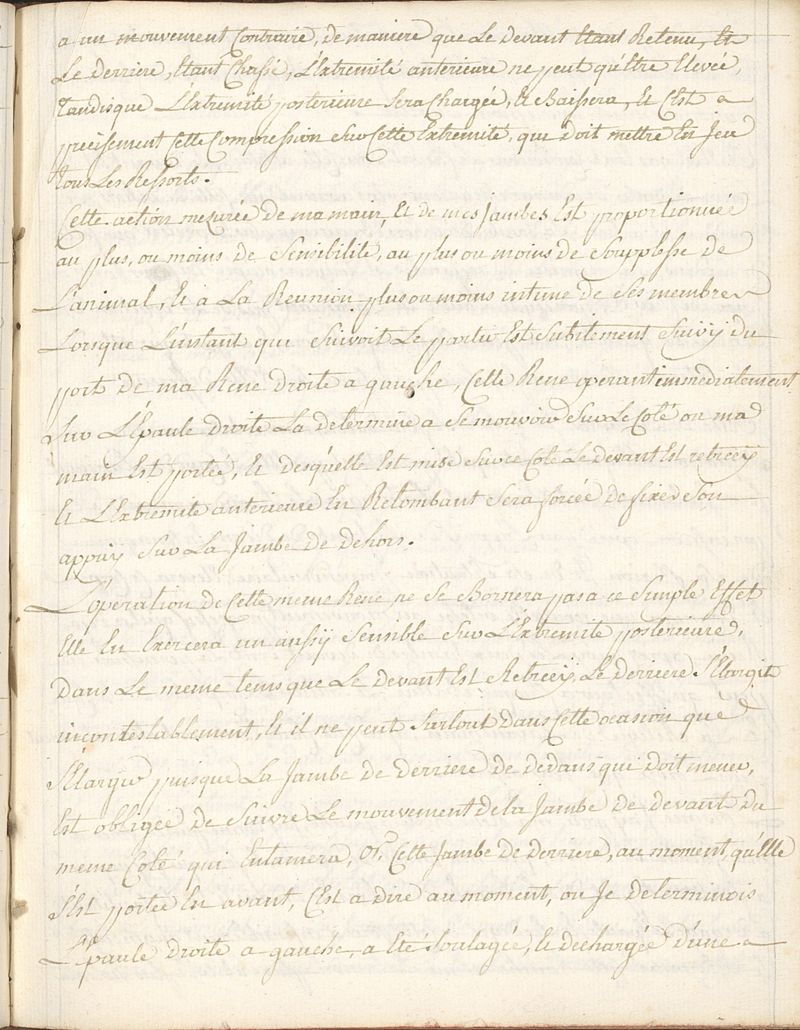 a un mouvement Contraire, de maniere que Le devant Etant Retenu, Et
Le derriere, Etant Chassé, L'Extremité anterieure ne peut qu'Etre Elevée,
tandisque L'Extremité posterieure Sera Chargée, Et Baissera, Et C'Est a
precisement Cette Compression Sur Cette Extremité, qui doit mettre En jeu
tous Les Ressorts.
Cette action mesurée de ma main, Et de mes jambes Est proportionnée
au plus, ou moins de Sensibilité, au plus ou moins de Souplesse de
L'animal, Et a La Reunion plus ou moins intime de Ses membres
Lorsque L'instant qui Suivoit Le partir Est Subitement Suivy du
port de ma Rene droite a gauche, Cette Rene operant immediatement
Sur L'Epaule droite La determine a Se mouvoir Sur Le Coté ou ma
main Est portée, Et desqu'elle Est mise Sur ce Coté Le devant Est retrecy
Et L'Extremité anterieure En Retombant Sera forcée de fixer Son
appuy Sur La Jambe de dehors.
L'operation de Cette meme Rene ne Se Bornera pas a ce Simple Effet
Elle En Exercera un aussy Sensible Sur L'Extremité posterieure,
Dans Le meme tems que Le devant Est Retrecy, Le derriere S'Elargit
incontestablement, Et il ne peut Surtout dans Cette ocasion que
S'Elargir puisque La Jambe de derriere de dedans qui doit mener,
Est obligée de Suivre Le mouvement de la Jambe de devant du
meme Coté qui Entamera, Or, Cette Jambe de derriere, au moment, qu'Elle
S'Est portée En avant, C'Est a dire au moment, ou Je determinois
L'Epaule droite a gauche, a Eté Soulagée, Et dechargée d'une